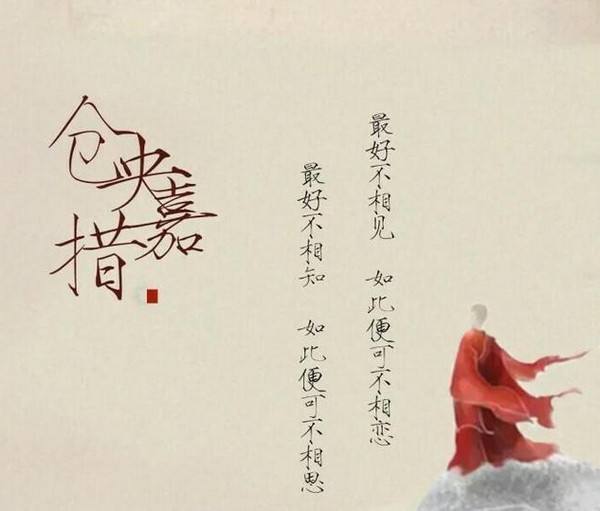 仓央嘉措
最好不相见 如此便可不相恋
最好不相知 如此便可不相思